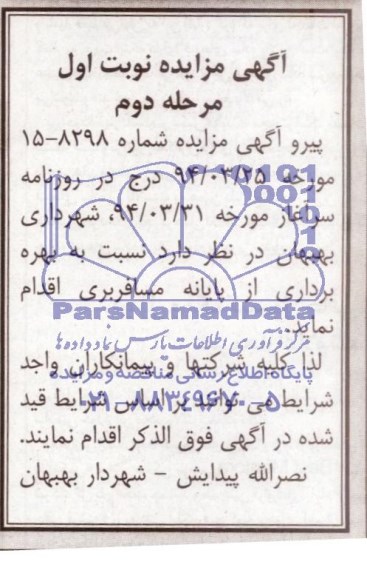 آگهی مزایده نوبت اول
مرحله دوم
پیرو آگهی مزایده شماره ۸۲۹۸-۱۵
مورخه ۹۴/۰۳/۲۵ درج در روزنامه
سرآغاز مورخه ۹۴/۰۳/۳۱، شهرداری
بهبهان در نظر دارد نسبت به بهره
برداری از پایانه مسافربری اقدام
نماید.
ParsNamadData
مرکز فرآوری اطلاعات پارس نماد داده ها
لذا کلیه شرکتها و پیمانکاران واجد
پایگاه اطلاع رسانی مناقصه و مزایده
شرایط می توانند بر اساس شرایط قید
۰۲۱-۸۸۳۴۹۶۷۰-۵
شده در آگهی فوق الذکر اقدام نمایند.
نصرالله پیدایش - شهردار بهبهان